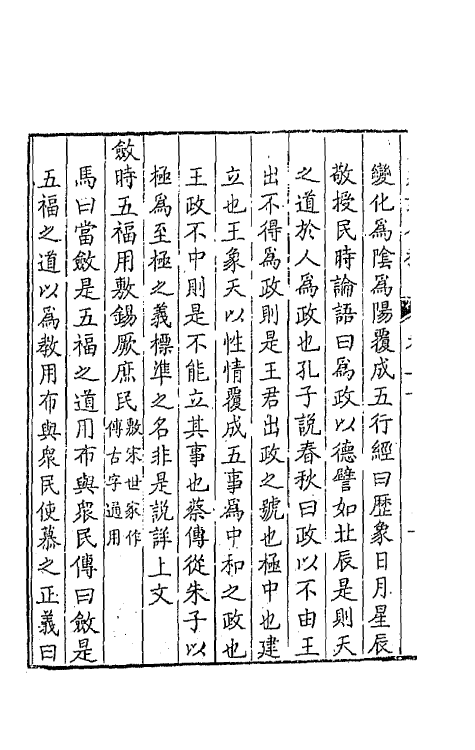 變化為陰為陽覆成五行經曰歴象日月星辰
敬授民時論語曰為政以德譬如北辰是則天
之道於人為政也孔子說春秋曰政以不由王
出不得為政則是王君出政之號也極中也建
立也王象天以性情覆成五事為中和之政也
王政不中則是不能立其事也蔡傳從朱子以
極為至極之義標準之名非是說詳上文
斂時五福用敷錫厥庶民敷宋世家作傅古字通用
馬曰當斂是五福之道用布與衆民傳曰斂是
五福之道以為教用布與衆民使慕之正義曰